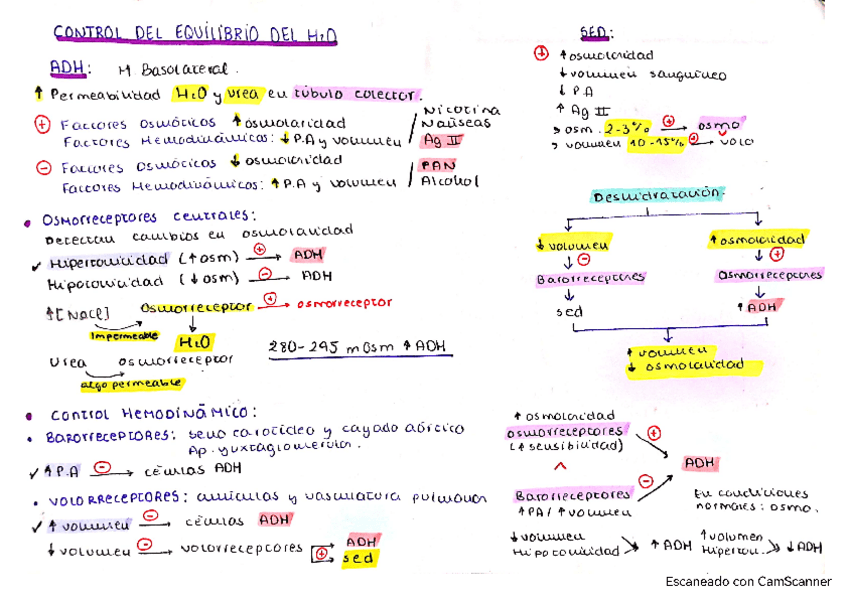 CONTROL DEL EQUILIBRIO DEL H2O
ADH: M Basolateral.
↑ Permeabilidad H2O y urea en túbulo colector.
⊕ Factores Osmóticos ↑ osmolaridad
Factores Hemodinámicos: ↓ P.A y volumen
/ Nicotina
Naúseas
Ag II
⊖ Factores Osmóticos ↓ osmolaridad
Factores Hemodinámicos: ↑ P.A y volumen
/ PAN
Alcohol
• OSMORRECEPTORES CENTRALES:
Detectan cambios en osmolaridad
✓ Hipertonicidad (↑osm) ⊕→ ADH
Hipotonicidad (↓osm) ⊖→ ADH
↑[NaCl] Osmorreceptor ⊕→ osmorreceptor
Impermeable
↓
H2O
Urea osmorreceptor
algo permeable
280-295 mOsm ↑ ADH
• CONTROL HEMODINÁMICO:
• BARORRECEPTORES: seno carotídeo y cayado aórtico
Ap. yuxtaglomerular.
✓ ↑P.A ⊖→ células ADH
• VOLORRECEPTORES: aurículas y vasculatura pulmonar
✓ ↑ volumen ⊖→ células ADH
↓ volumen ⊖→ volorreceptores ⊕→ ADH
→ sed
SED:
⊕ ↑ osmolaridad
↓ volumen sanguíneo
↓ P.A
↑ Ag II
osm. 2-3% ⊕→ osmo
volumen 10-15% ⊕→ volo
Deshidratación.
↓ volumen ↑ osmolaridad
↓ ⊖ ↓ ⊕
Barorreceptores Osmorreceptores
↓ ↓
sed ↑ ADH
↑ volumen
↓ osmolalidad
↑ osmolaridad
osmorreceptores ⊕
(↑ sensibilidad)
^
ADH
Barorreceptores ⊖
↑PA/ ↑ volumen
En condiciones
normales: osmo.
↓ volumen
Hipotonicidad → ↑ ADH
↑ volumen
Hiperton. → ↓ ADH
Escaneado con CamScanner